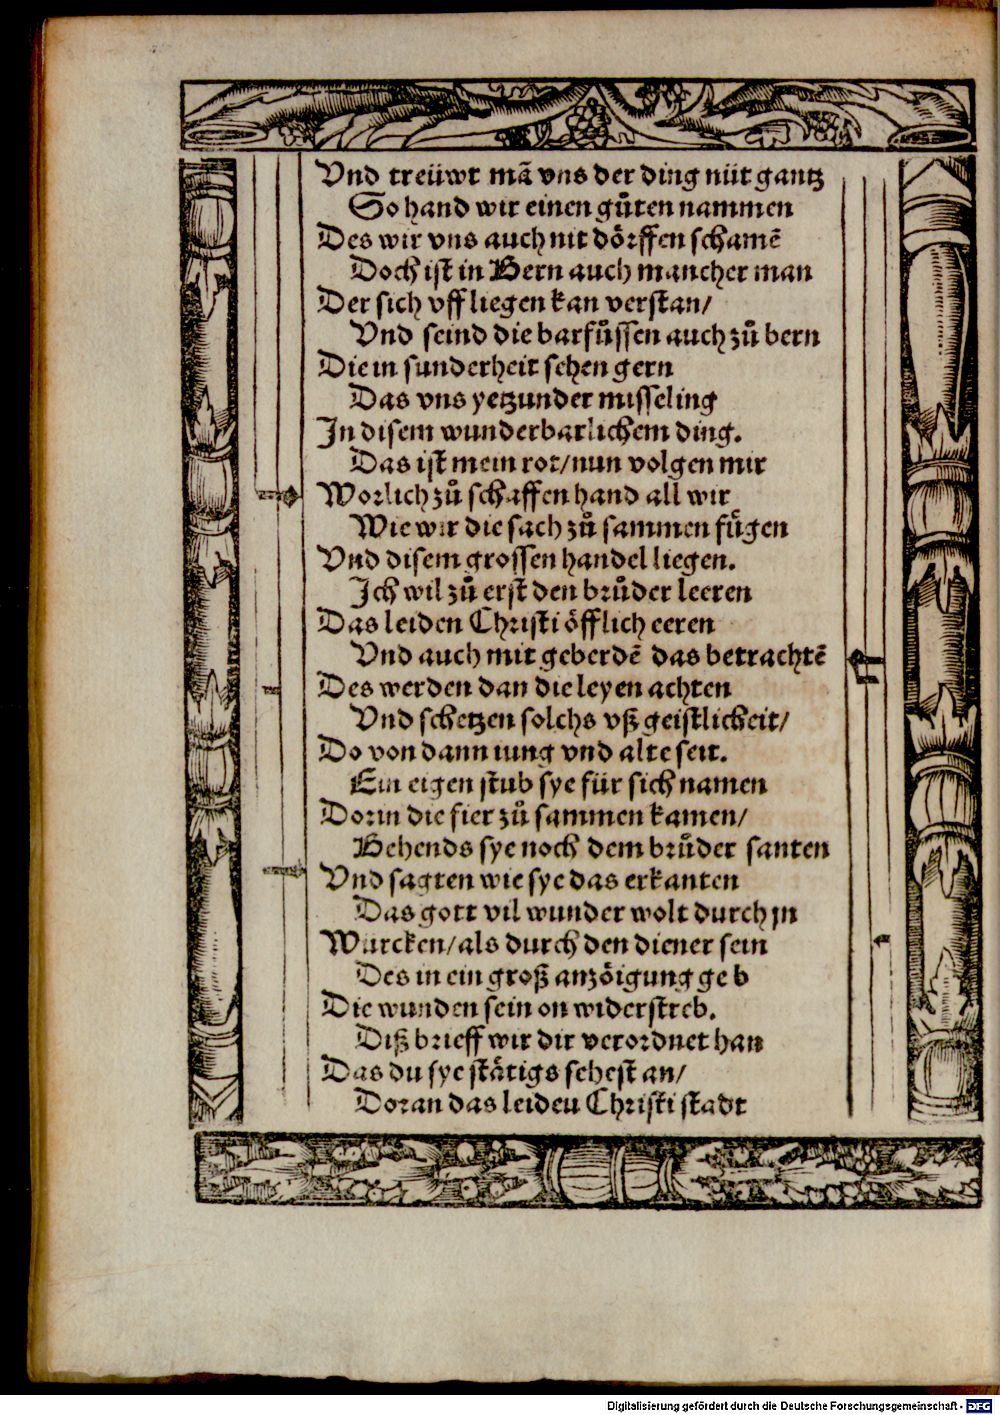 Vnd treüwt mã vns der ding nüt gantz
So hand wir einen gůten nammen
Des wir vns auch nit dörffen schamẽ
Doch ist in Bern auch mancher man
Der sich vff liegen kan verstan/
Vnd seind die barfůssen auch zů bern
Die in sunderheit sehen gern
Das vns yetzunder misseling
In disem wunderbarlichem ding.
Das ist mein rot/nun volgen mir
Worlich zů schaffen hand all wir
Wie wir die sach zů sammen fůgen
Vnd disem grossen handel liegen.
Ich wil zů erst den brůder leeren
Das leiden Christi öfflich eeren
Vnd auch mit geberdẽ das betrachtẽ
Des werden dan die leyen achten
Vnd schetzen solchs vß geistlicheit/
Do von dann iung vnd alte seit.
Ein eigen stub sye für sich namen
Dorin die fier zů sammen kamen/
Behends sye noch dem brůder santen
Vnd sagten wie sye das erkanten
Das gott vil wunder wolt durch jn
Würcken/als durch den diener sein
Des in ein groß anzöigung geb
Die wunden sein on widerstreb.
Diß brieff wir dir verordnet han
Das du sye stätigs sehest an/
Doran das leiden Christi stadt
Digitalisierung gefördert durch die Deutsche Forschungsgemeinschaft - DFG